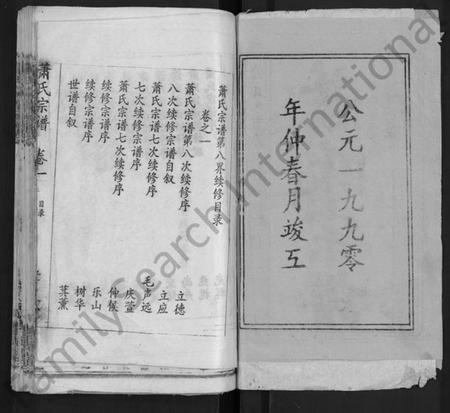 公元一九九零
年仲春月竣工
萧氏宗谱第八界续修目录
卷之一
萧氏宗谱第八次续修序 立德
八次续修宗谱自叙 立应
萧氏宗谱七次续修序 毛声远
七次续修宗谱序 庆萱
萧氏宗谱七次续修序 仲候
续修宗谱序 乐山
续修宗谱序 树华
世谱自叙 其薰
萧氏宗谱 卷一 目录
Family Search International